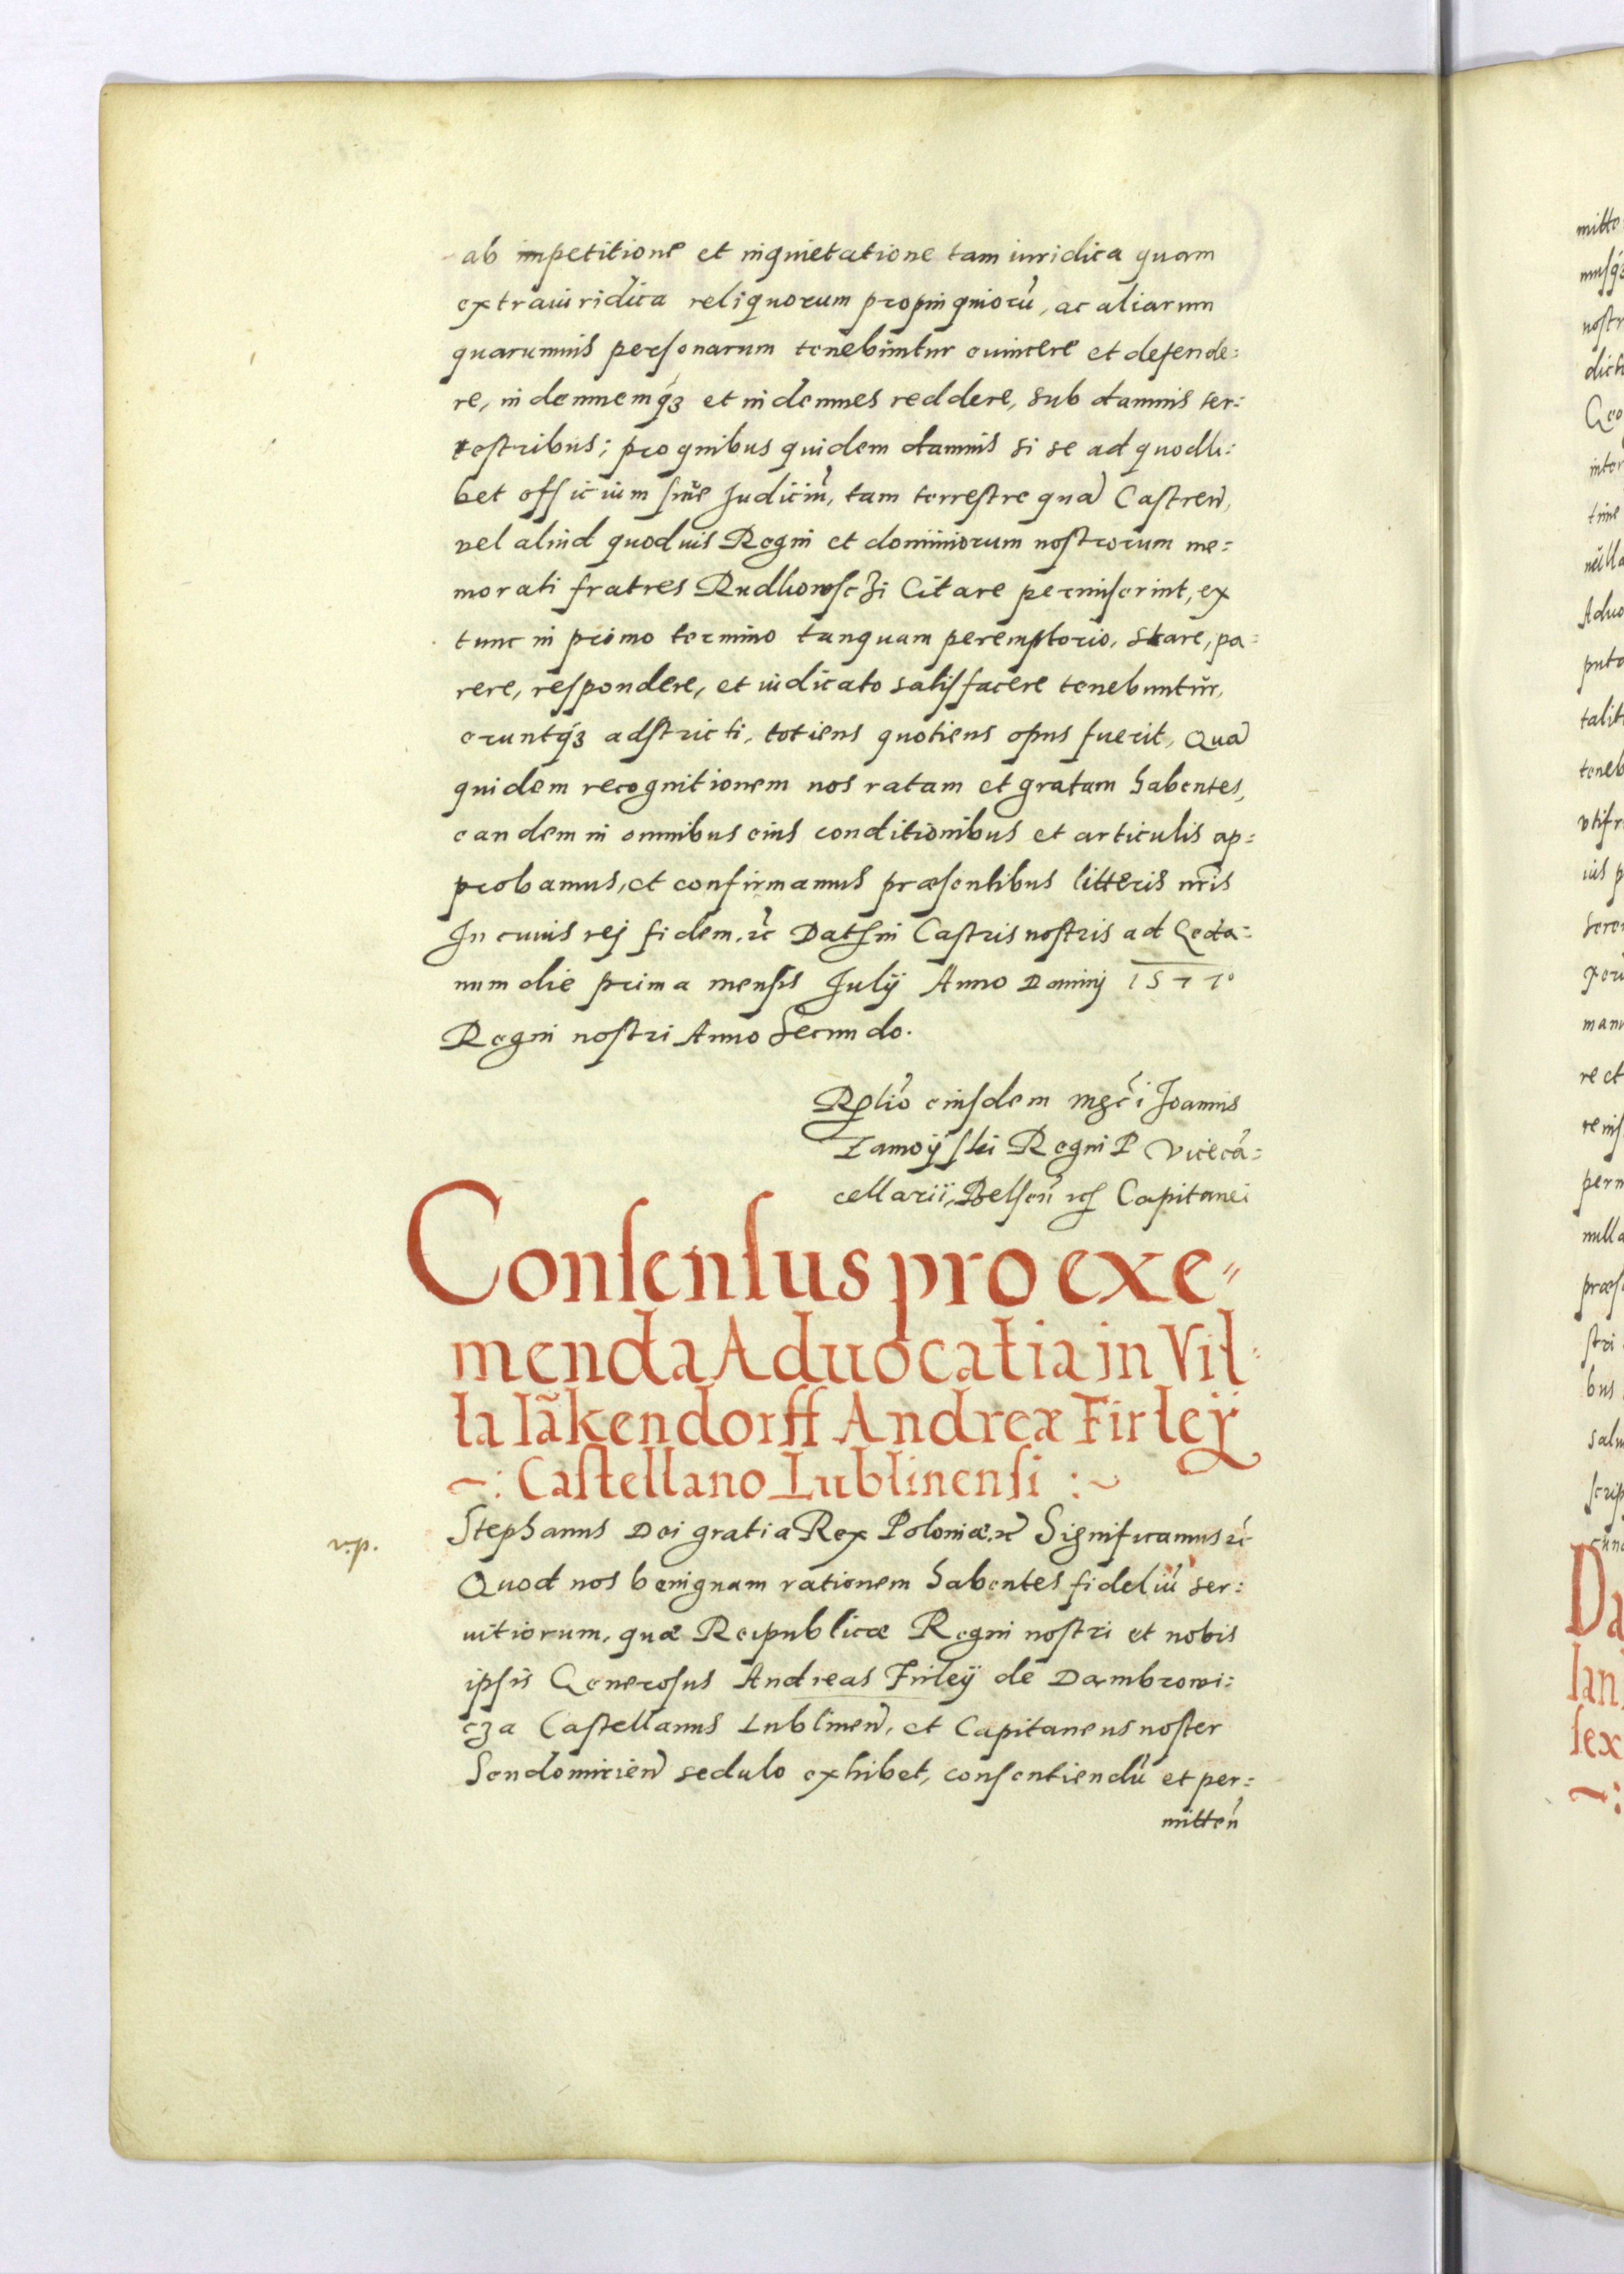 ab impetitione et inquietatione tam iuridica quam
extraiuridica reliquorum propinquiorũ, ac aliarum
quarumuis personarum tenebuntur euincere et defende:
re, indemnemq́ꝫ et indemnes reddere, sub damnis ter:
restribus; pro quibus quidem damnis si se ad quodli:
bet officium siue Judiciũ, tam terrestre quã Castreñ,
vel aliud quoduis Regni et dominiorum nostrorum me:
morati fratres Rudkowsczi Citare permiserint, ex
tunc in primo termino tanquam peremptorio, stare, pa:
rere, respondere, et iudicato satisfacere tenebuntur,
eruntq́ꝫ adstricti, totiens quotiens opus fuerit, Quã
quidem recognitionem nos ratam et gratam habentes,
eandem in omnibus eius conditionibus et articulis ap:
probamus, et confirmamus præsentibus litteris nr̃is
In cuius rej fidem, ꝛc̃ Dat: in Castris nostris ad Geda:
num die prima mensis Julij Anno Dominj 1577º
Regni nostri Anno Secundo.
Rel̃io eiusdem mgc̃i Joannis
Zamoÿski Regni P Vicecã:
cellarii, Belseñ ꝛc̃ Capitanei
Consensus pro exe⸗
menda Aduocatia in Vil:
la Iãkendorff Andreæ Firleÿ
~: Castellano Lublinensi :~
Stephanus Dei gratia Rex Poloniæ, ꝛc̃ Significamus ꝛc̃
Quod nos benignam rationem habentes fideliũ ser:
uitiorum, quæ Reipublicæ Regni nostri et nobis
ipsis Generosus Andreas Firleÿ de Dambrowi:
cza Castellanus Lublineñ, et Capitaneus noster
Sendomirieñ sedulo exhibet, consentiendũ et per:
mitteñ